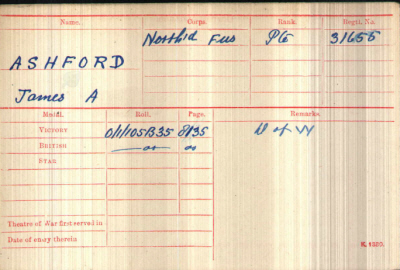 Name. Corps. Rank. Regtl. No.
Northd Fus Pte 31655
ASHFORD
James A
Medal. Roll. Page. Remarks.
Victory O/1/105B35 8135 D of W
British —do— do
Star
Theatre of War first served in
Date of entry therein
K. 1380.